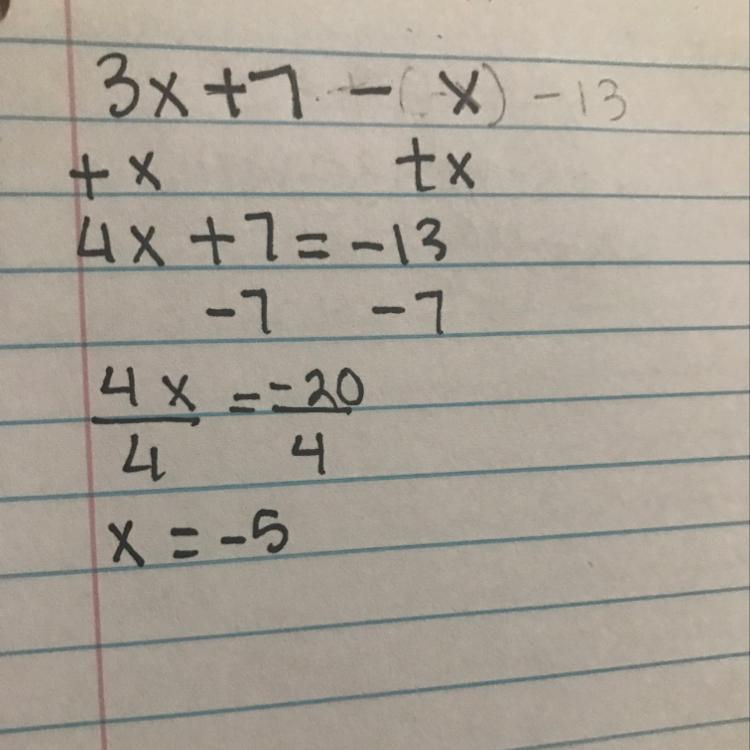 3x + 7 - (x) - 13
+ x + x
4x + 7 = -13
-7 -7
4x = -20
4 4
x = -5